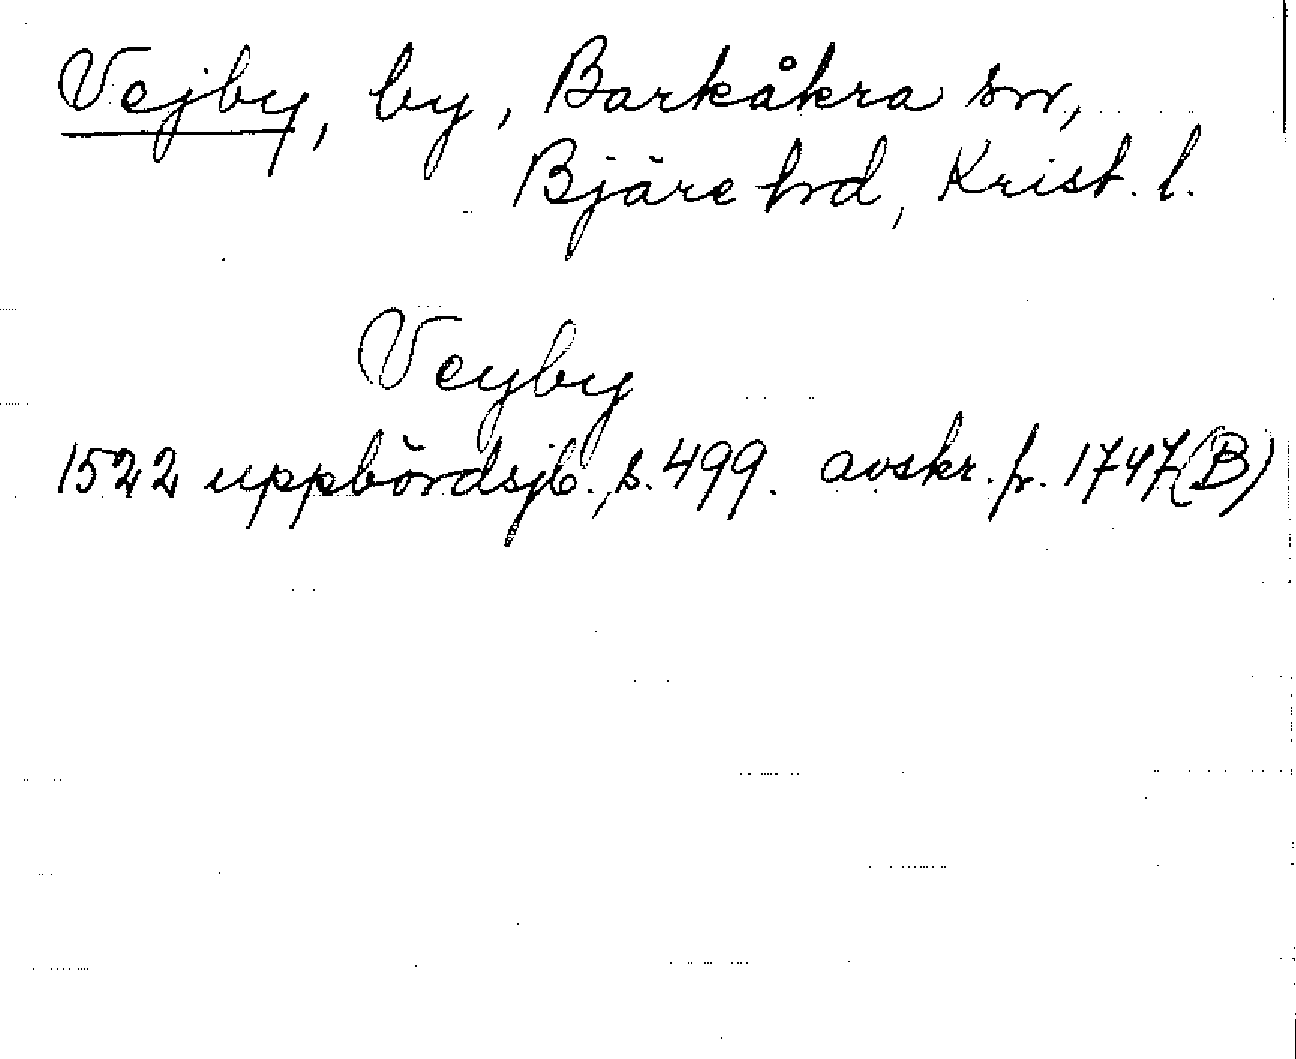 Vejby, by, Barkåkra sn,
Bjäre hrd, Krist. l.
Veyby
1522 uppbördsjb., s. 499. avskr. fr. 1747 (B)